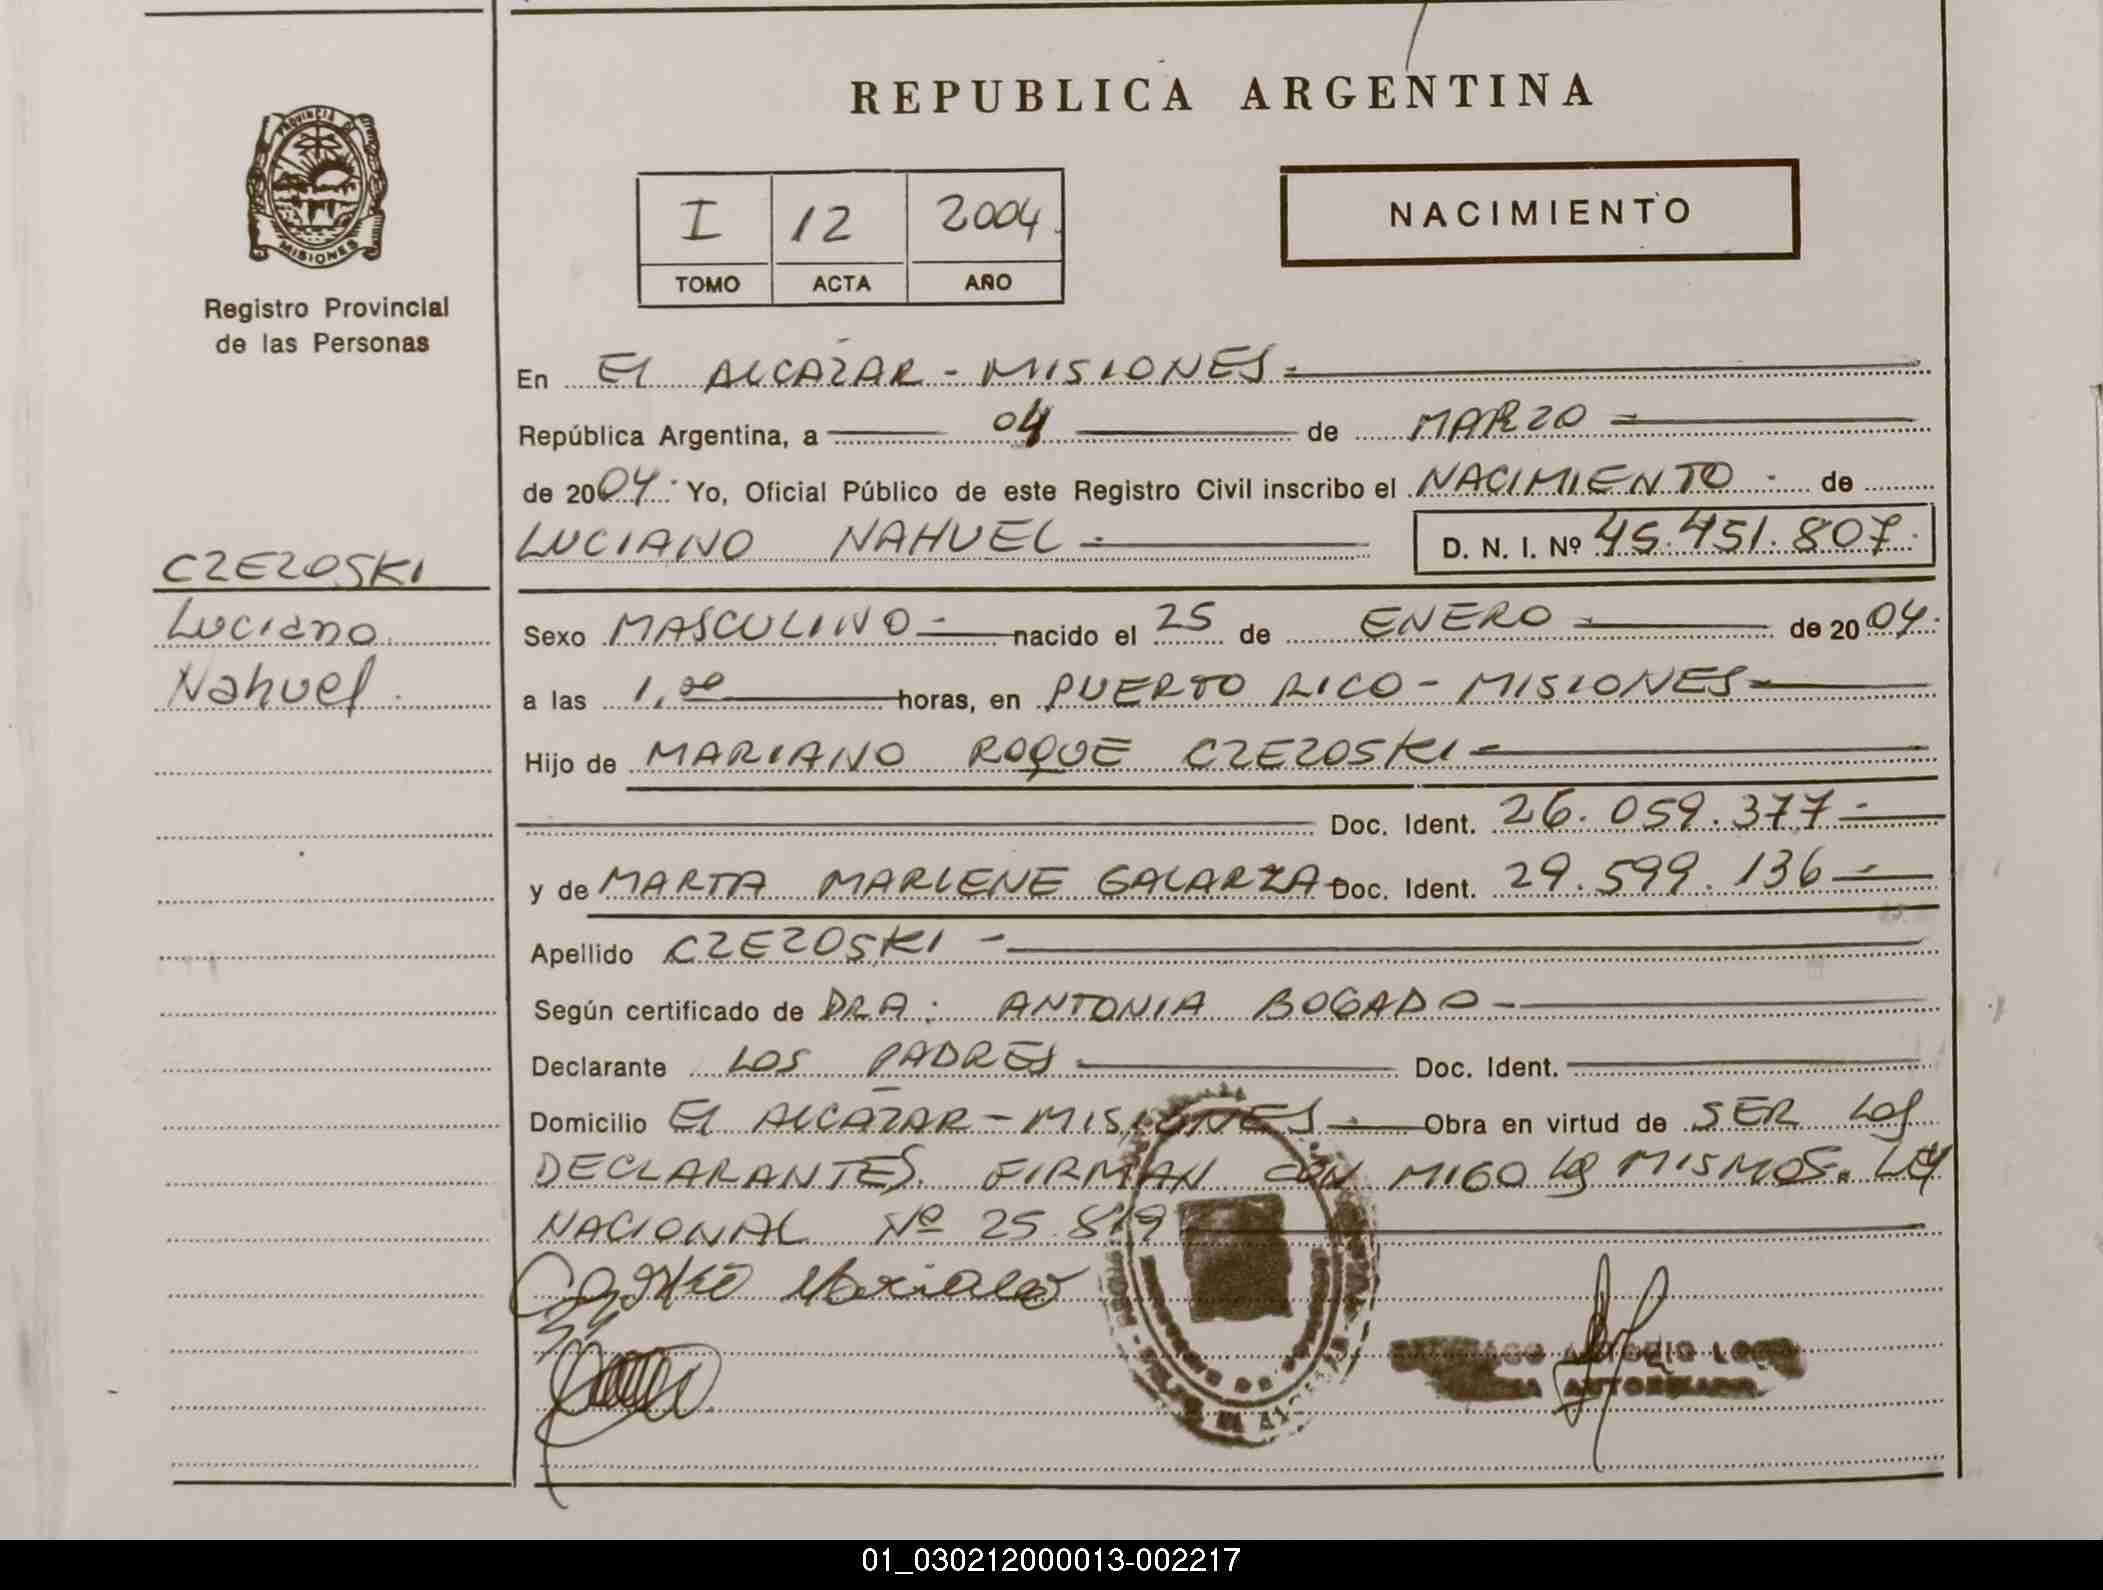 REPUBLICA ARGENTINA
PROVINCIA DE
MISIONES
Registro Provincial
de las Personas
I 12 2004
TOMO ACTA AÑO
NACIMIENTO
En EL ALCAZAR - MISIONES -
República Argentina, a 04 de MARZO
de 2004. Yo, Oficial Público de este Registro Civil inscribo el NACIMIENTO - de
LUCIANO NAHUEL - D. N. I. Nº 45.451.807.
CZEZOSKI
Luciano
Nahuel.
Sexo MASCULINO - nacido el 25 de ENERO de 2004.
a las 1,00 horas, en PUERTO RICO - MISIONES -
Hijo de MARIANO ROQUE CZEZOSKI -
Doc. Ident. 26.059.377 -
y de MARTA MARLENE GALARZA - Doc. Ident. 29.599.136 -
Apellido CZEZOSKI -
Según certificado de DRA: ANTONIA BOGADO -
Declarante LOS PADRES Doc. Ident.
Domicilio EL ALCAZAR - MISIONES - Obra en virtud de SER LOS
DECLARANTES. FIRMAN CON MIGO los MISMOS. LEY
NACIONAL Nº 25.819
01_030212000013-002217